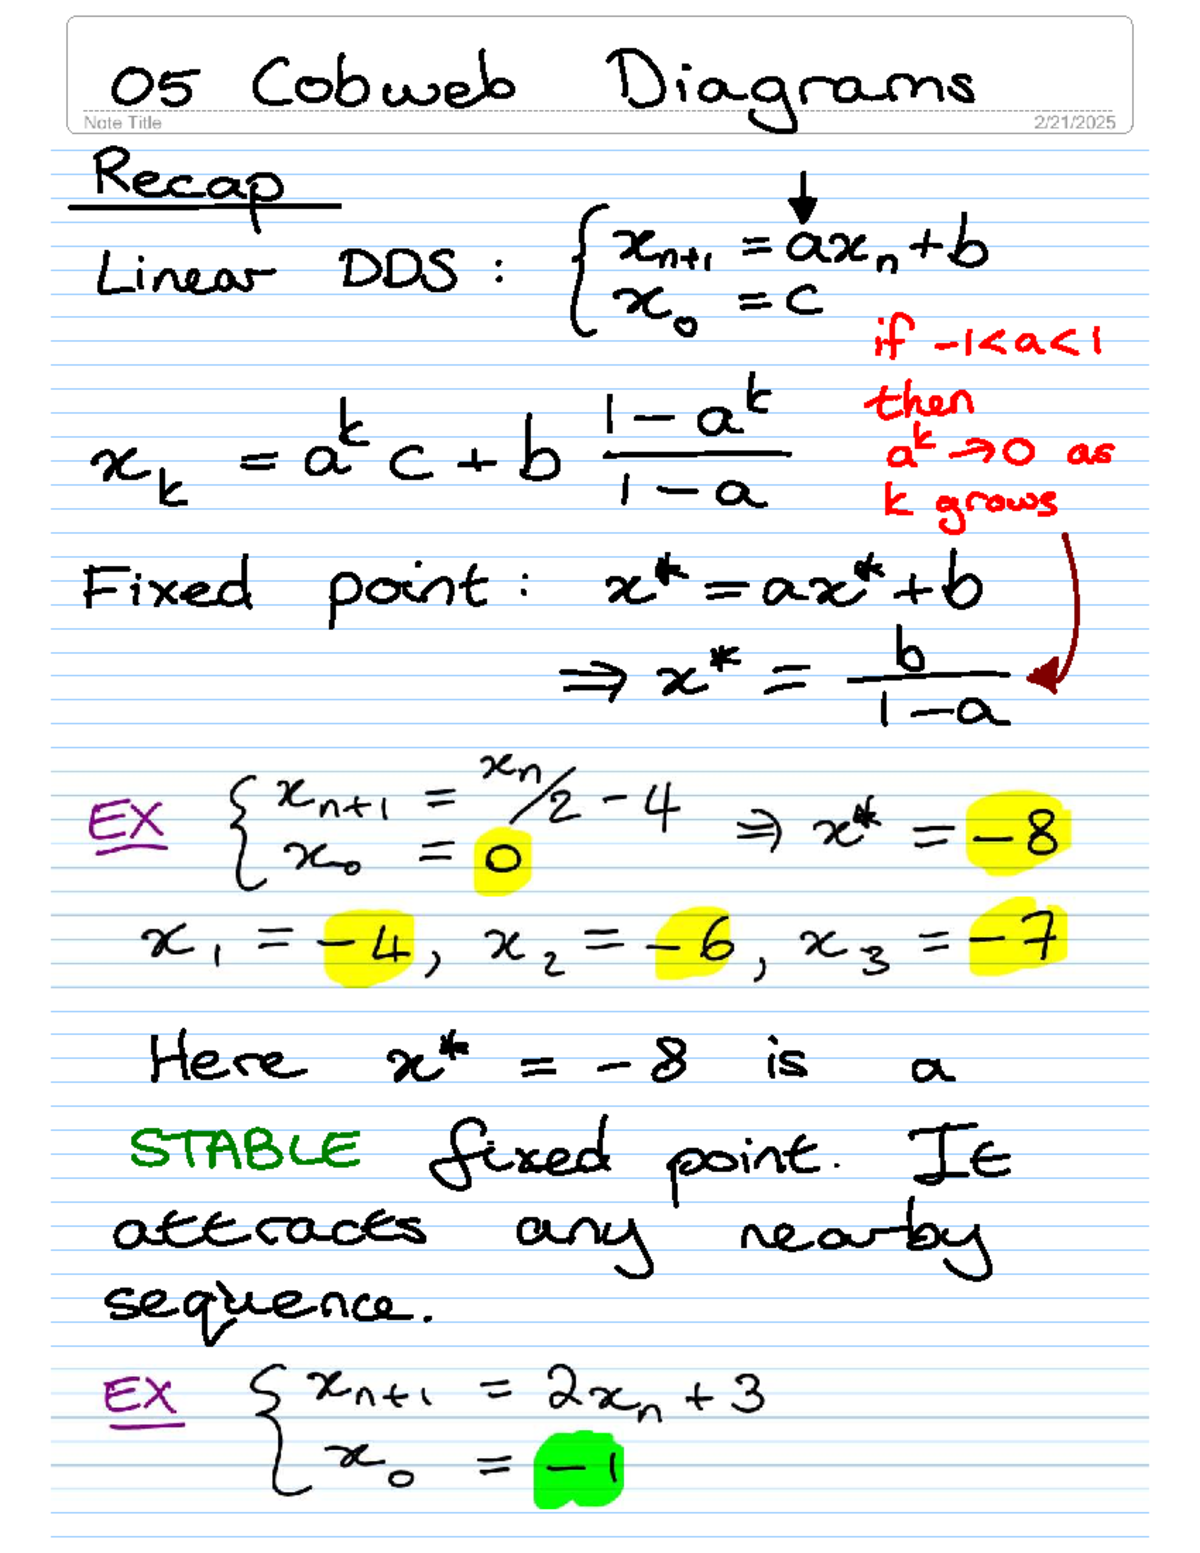 05 Cobweb Diagrams
Note Title 2/21/2025
Recap
Linear DDS : { xₙ₊₁ = axₙ + b
x₀ = c
if -1<a<1
then
aᵏ → 0 as
k grows
xₖ = aᵏ c + b (1 - aᵏ)/(1 - a)
Fixed point : x* = ax* + b
⇒ x* = b/(1 - a)
EX { xₙ₊₁ = xₙ/2 - 4 ⇒ x* = -8
x₀ = 0
x₁ = -4, x₂ = -6, x₃ = -7
Here x* = -8 is a
STABLE fixed point. It
attracts any nearby
sequence.
EX { xₙ₊₁ = 2xₙ + 3
x₀ = -1